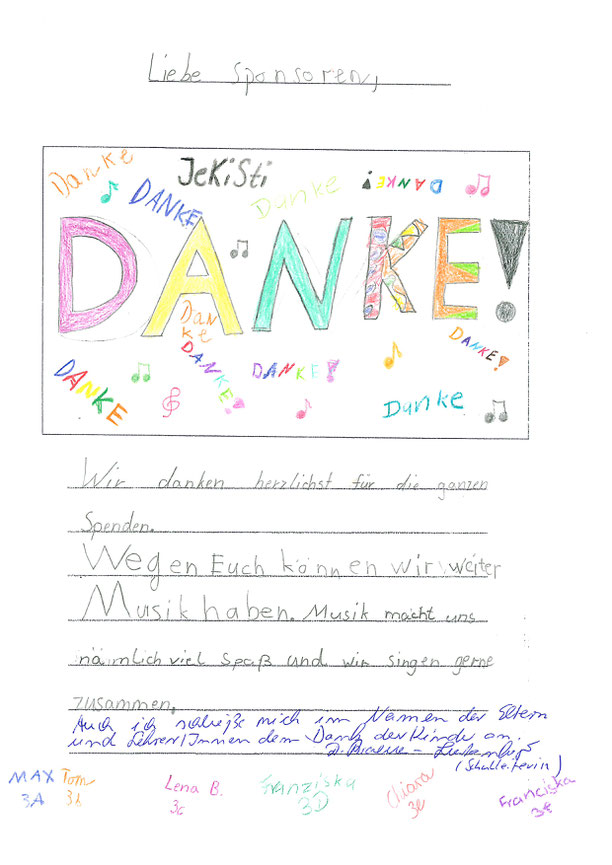 Liebe Sponsoren,
Danke
JeKiSti
DANKE
Danke
DANKE!
DANKE!
Dan
ke
DANKE!
DANKE
DANKE!
DANKE!
Danke
Wir danken herzlichst für die ganzen
Spenden.
Wegen Euch können wir weiter
Musik haben. Musik macht uns
nämlich viel Spaß und wir singen gerne
zusammen.
Auch ich schließe mich im Namen der Eltern
und Lehrer/Innen dem Dank der Kinder an.
(Schulleiterin)
MAX Tom Lena B. Franziska Chiara Franciska
3A 3B 3c 3D 3e 3E